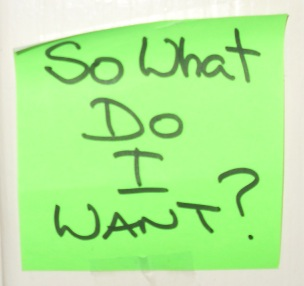 So What
Do
I
WANT?